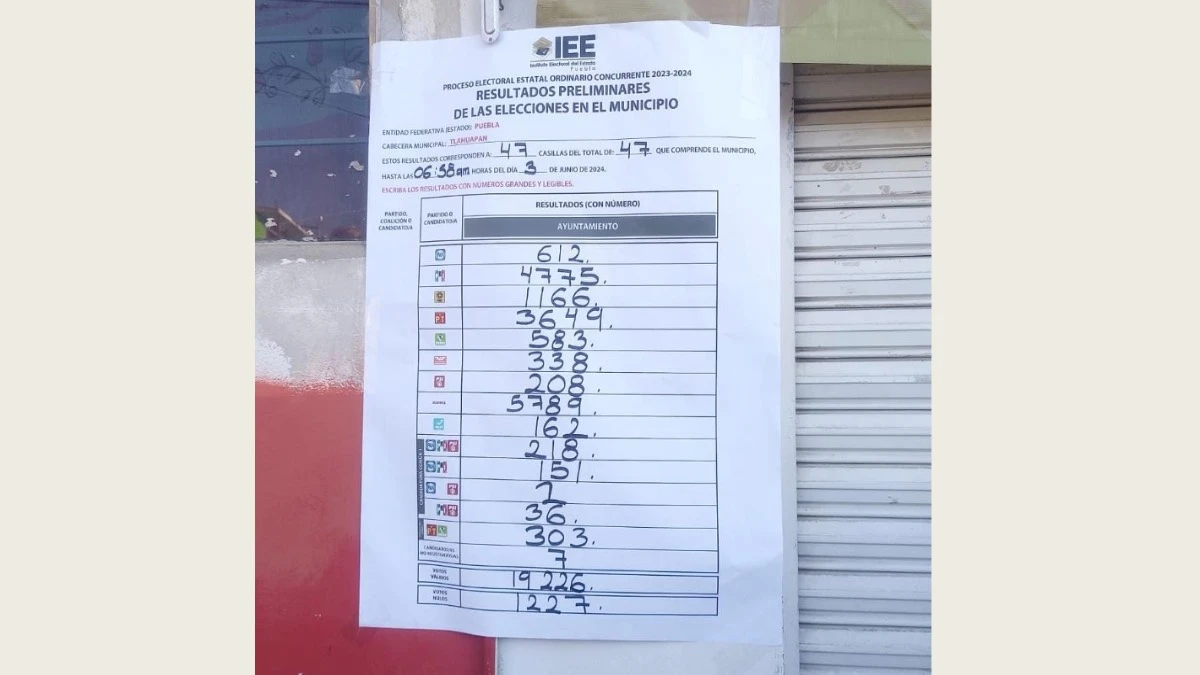 IEE
Instituto Electoral del Estado
Puebla
PROCESO ELECTORAL ESTATAL ORDINARIO CONCURRENTE 2023-2024
RESULTADOS PRELIMINARES
DE LAS ELECCIONES EN EL MUNICIPIO
ENTIDAD FEDERATIVA (ESTADO): PUEBLA
CABECERA MUNICIPAL: TLAHUAPAN
ESTOS RESULTADOS CORRESPONDEN A: 47 CASILLAS DEL TOTAL DE: 47 QUE COMPRENDE EL MUNICIPIO,
HASTA LAS 06:58am HORAS DEL DÍA 3 DE JUNIO DE 2024.
ESCRIBA LOS RESULTADOS CON NÚMEROS GRANDES Y LEGIBLES.
PARTIDO, COALICIÓN O CANDIDATO/A
PARTIDO O CANDIDATO/A
RESULTADOS (CON NÚMERO)
AYUNTAMIENTO
612.
4775.
1166.
PT 3649.
583.
338.
208.
morena 5789.
162.
218.
151.
2
36.
PT 303.
CANDIDATOS/AS NO REGISTRADOS/AS 7
VOTOS VÁLIDOS 19 226.
VOTOS NULOS 1227.